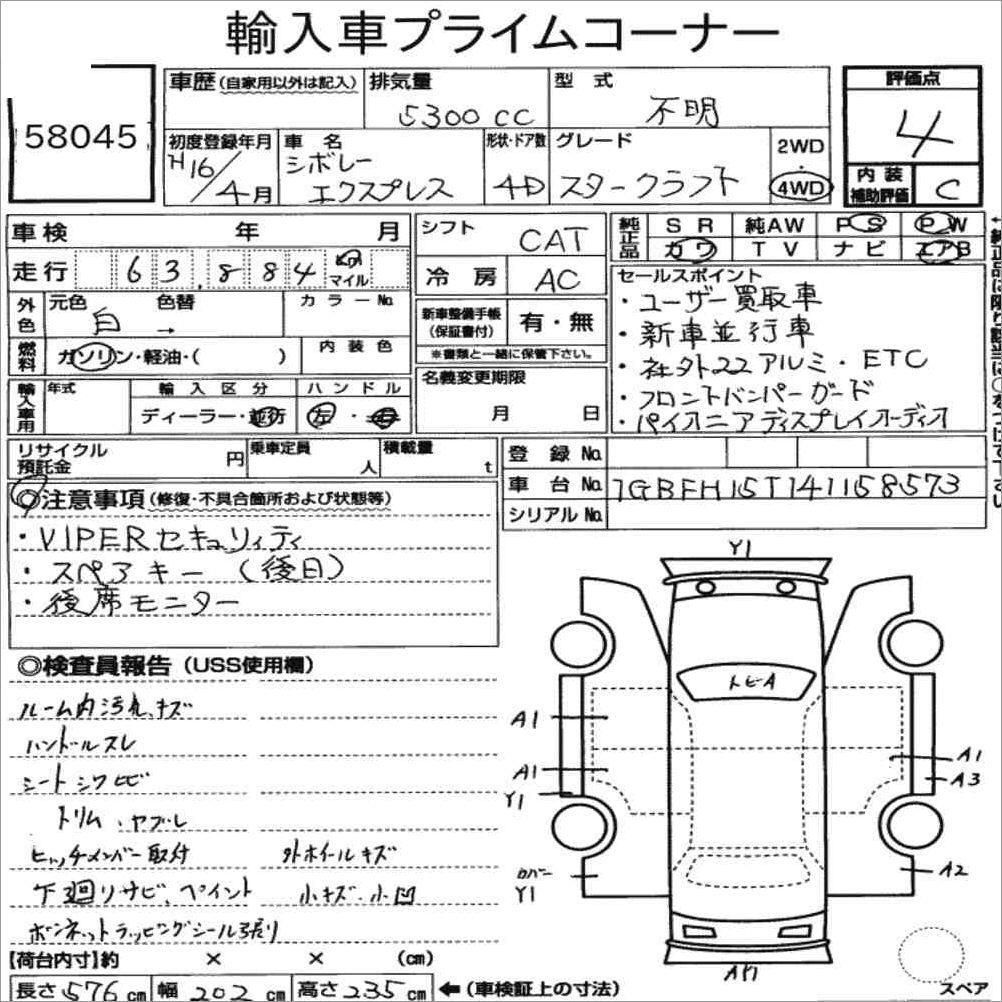 輸入車プライムコーナー
58045
車歴(自家用以外は記入)
排気量
5300CC
型式
不明
評価点
4
初度登録年月
H16/4月
車名
シボレー
エクスプレス
形状・ドア数
4D
グレード
スタークラフト
2WD
・
4WD
内装
補助評価
C
車検 年 月
走行 63,884 km マイル
シフト
CAT
冷房
AC
純正品
SR 純AW PS PW
カワ TV ナビ エアB
外色
元色 色替 カラーNo
白 →
燃料
ガソリン・軽油・( )
内装色
新車整備手帳
(保証書付)
有・無
※書類と一緒に保管下さい。
セールスポイント
・ユーザー買取車
・新車並行車
・社外22アルミ・ETC
・フロントバンパーガード
・パイオニアディスプレイオーディオ
輸入車用
年式
輸入区分
ディーラー・並行
ハンドル
左・右
名義変更期限
月 日
リサイクル
預託金
円
乗車定員
人
積載量
t
登録No
車台No 1GBFH15T141158573
シリアルNo
◎注意事項(修復・不具合箇所および状態等)
・VIPERセキュリィティ
・スペアキー(後日)
・後席モニター
◎検査員報告(USS使用欄)
ルーム内汚れ、キズ
ハンドルスレ
シートシワヒビ
トリム、ヤブレ
ヒッチメンバー取付
外ホイールキズ
下廻りサビ、ペイント
小キズ、小凹
ボンネットラッピングシール張り
Y1
トビA
A1
A1
Y1
A1
A3
カバー
Y1
A2
スペア
【荷台内寸】約 × × (cm)
長さ576cm 幅202cm 高さ235cm ←(車検証上の寸法)